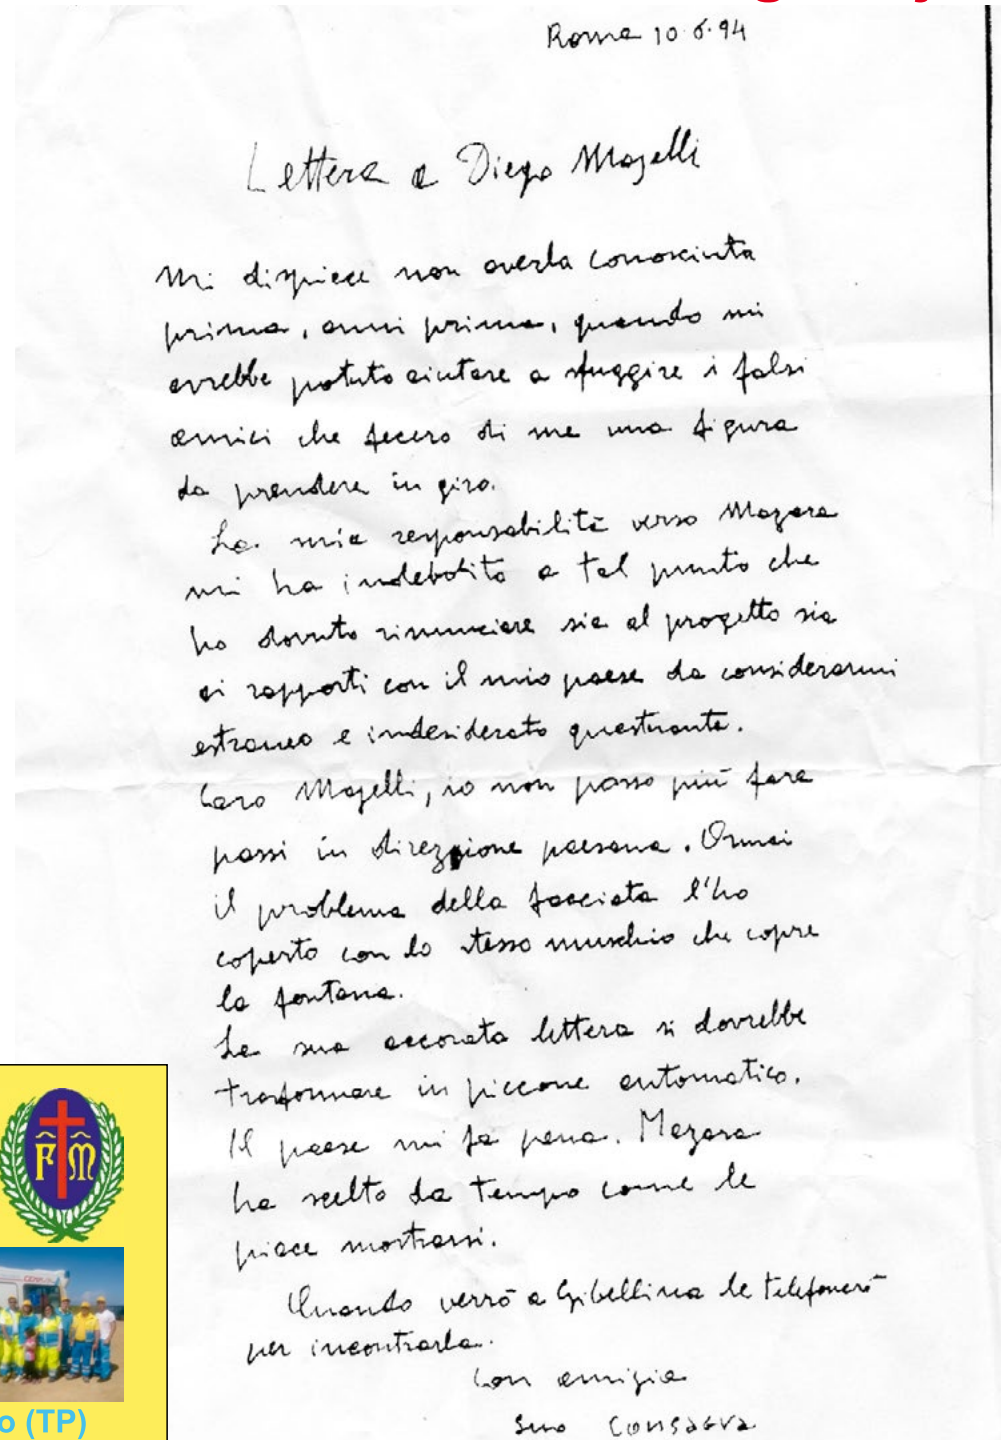 Roma 10.6.94
Lettera a Diego Mazelli
Mi dispiace non averla conosciuta
prima, anni prima, quando mi
avrebbe potuto aiutare a sfuggire i falsi
amici che fecero di me una figura
da prendere in giro.
La mia responsabilità verso Mazara
mi ha indebolito a tal punto che
ho dovuto rinunciare sia al progetto sia
ai rapporti con il mio paese da considerarmi
estraneo e indesiderato questuante.
Caro Mazelli, io non posso più fare
passi in direzione paesana. Ormai
il problema della facciata l'ho
coperto con lo stesso muschio che copre
la fontana.
La sua accorata lettera si dovrebbe
trasformare in piccone automatico.
Il paese mi fa pena. Mazara
ha scelto da tempo come le
piace mostrarsi.
Quando verrò a Gibellina le telefonerò
per incontrarla.
Con amizia
Suo Consagra
FM
o (TP)